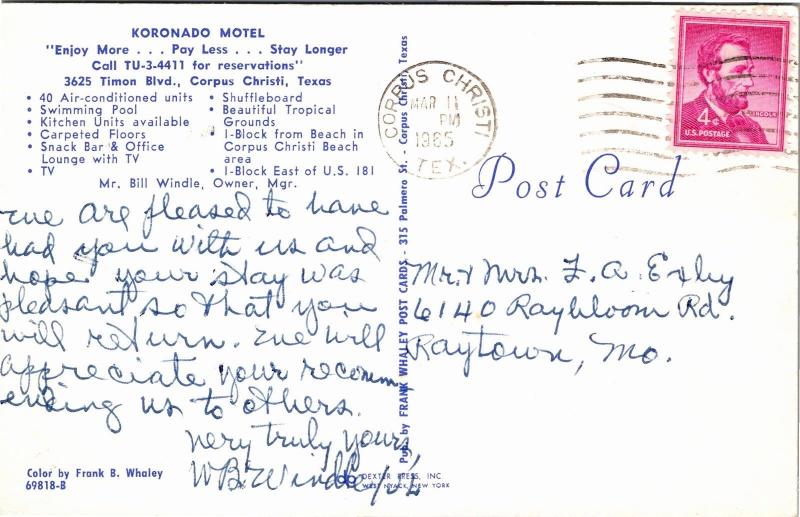 KORONADO MOTEL
"Enjoy More . . . Pay Less . . . Stay Longer
Call TU-3-4411 for reservations"
3625 Timon Blvd., Corpus Christi, Texas
• 40 Air-conditioned units
• Swimming Pool
• Kitchen Units available
• Carpeted Floors
• Snack Bar & Office
Lounge with TV
• TV
• Shuffleboard
• Beautiful Tropical
Grounds
• 1-Block from Beach in
Corpus Christi Beach
area
• 1-Block East of U.S. 181
Mr. Bill Windle, Owner, Mgr.
We are pleased to have
had you with us and
hope your stay was
pleasant so that you
will return. We will
appreciate your recomm
ending us to others.
Very truly yours,
W.B. Windle
Color by Frank B. Whaley
69818-B
Pub. by FRANK WHALEY POST CARDS - 315 Palmero St. - Corpus Christi, Texas
DEXTER PRESS, INC.
WEST NYACK, NEW YORK
CORPUS CHRISTI
MAR 11
PM
1965
TEX.
4¢
LINCOLN
U.S. POSTAGE
Post Card
Mr. & Mrs. F. A. Exley
6140 Raybloom Rd.
Raytown, Mo.